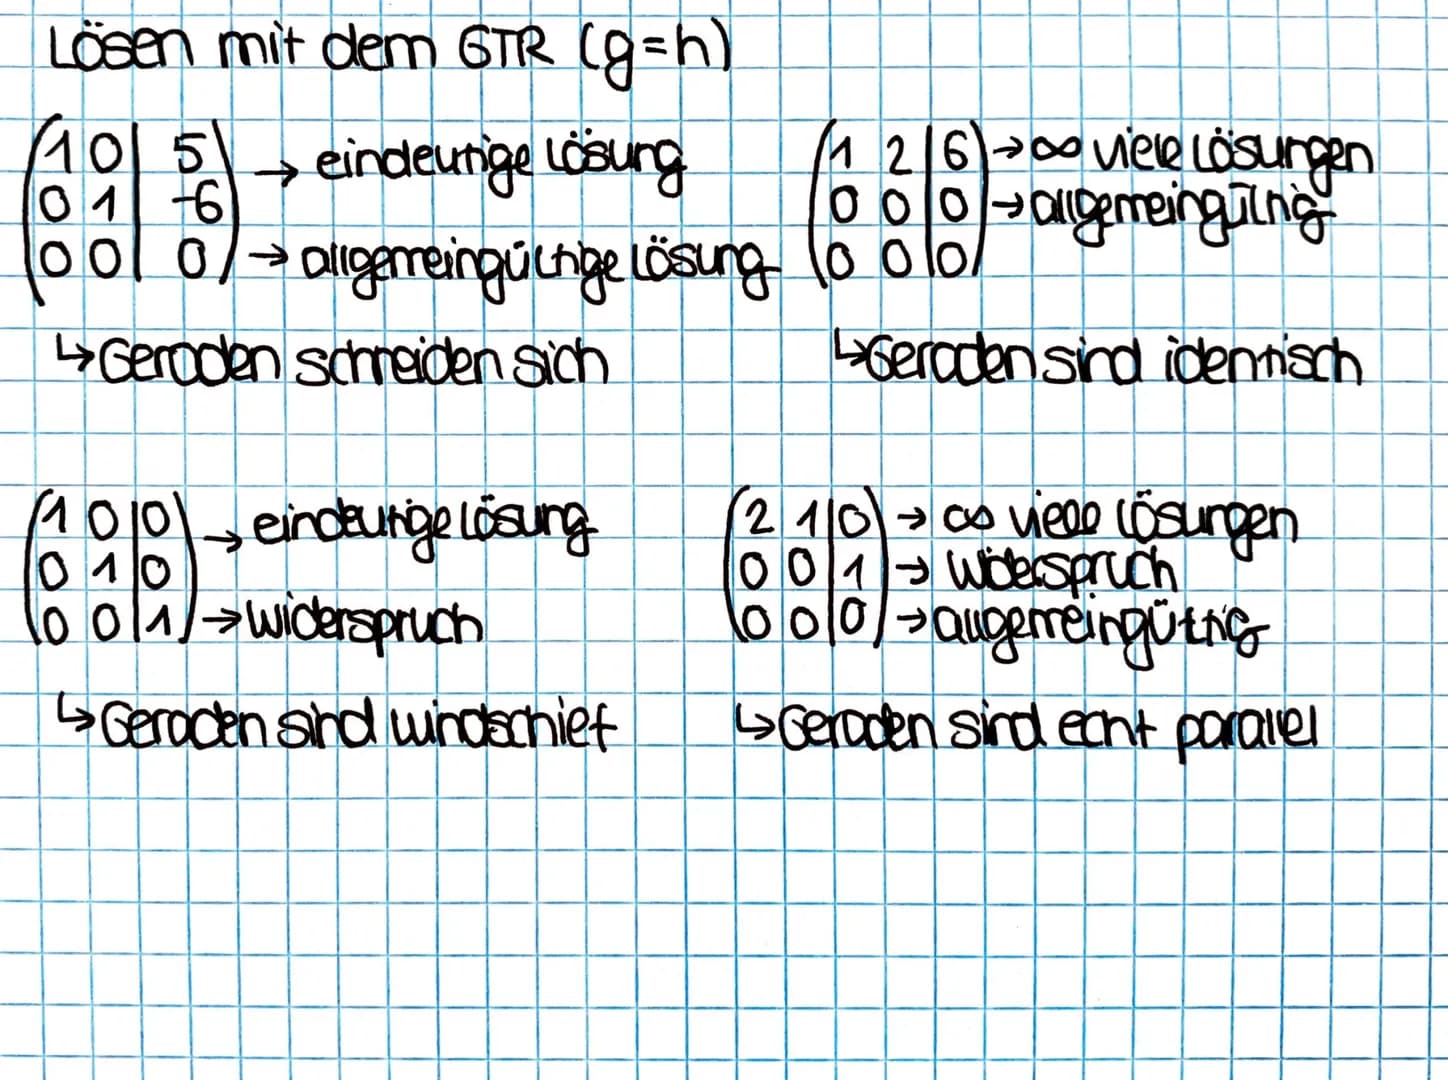 Lösen mit dem GTR (g=h)
(1 0 | 5) → eindeutige Lösung
(0 1 | -6)
(0 0 | 0) → allgemeingültige Lösung
↳ Geraden schneiden sich
(1 2 | 6) → ∞ viele Lösungen
(0 0 | 0) → allgemeingültig
(0 0 | 0)
↳ Geraden sind identisch
(1 0 | 0) → eindeutige Lösung
(0 1 | 0)
(0 0 | 1) → widerspruch
↳ Geraden sind windschief
(2 1 | 0) → ∞ viele Lösungen
(0 0 | 1) → widerspruch
(0 0 | 0) → allgemeingültig
↳ Geraden sind echt parallel